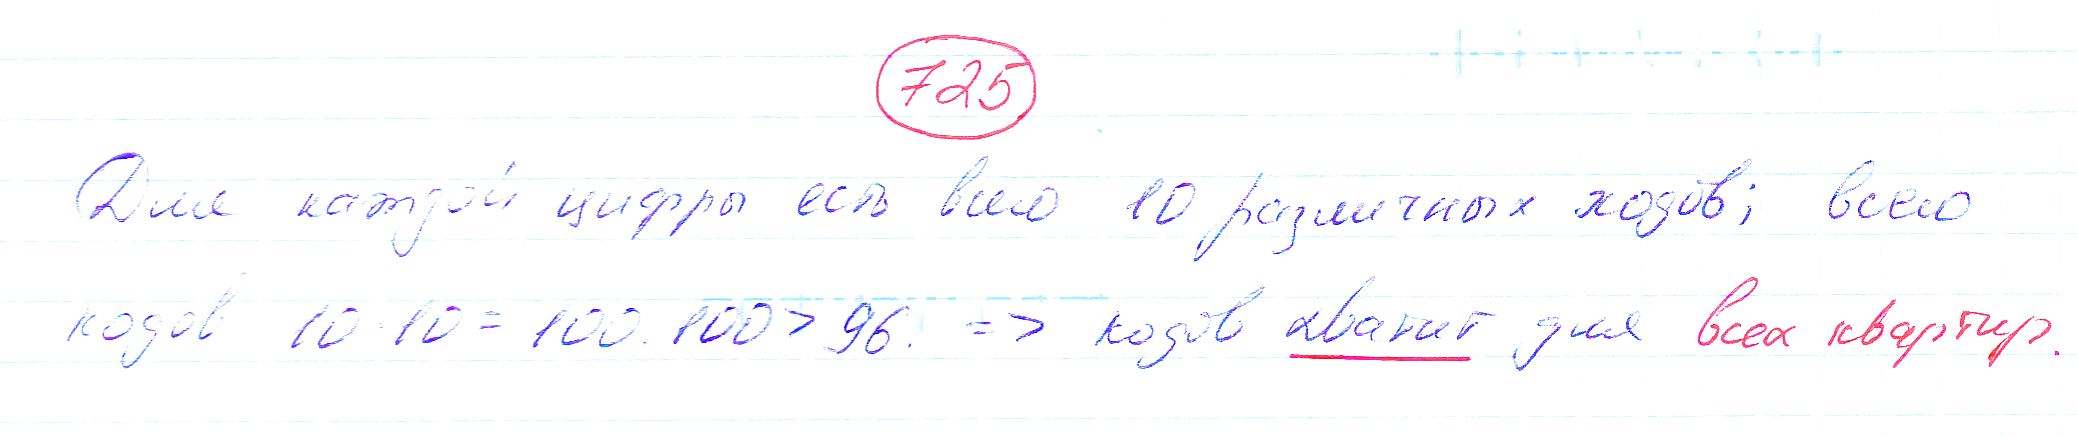 725
Для каждой цифры есть всего 10 различных ходов; всего
кодов 10·10 = 100. 100 > 96. => кодов хватит для всех квартир.